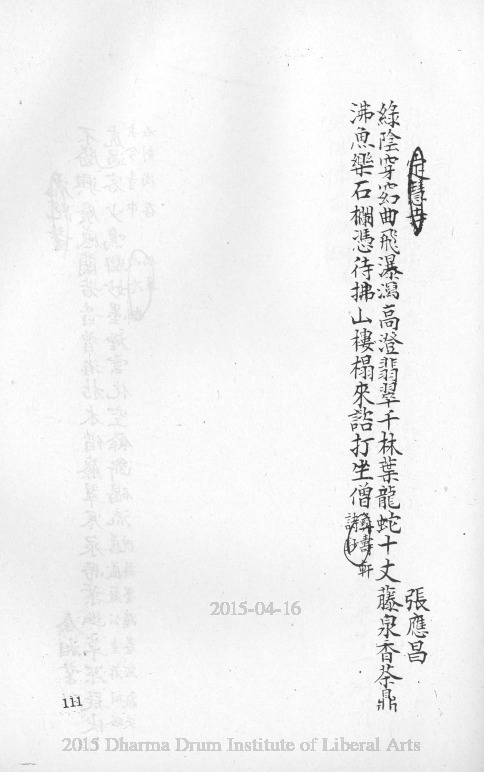 定慧寺
張應昌
綠陰穿窈曲飛瀑瀉高澄翡翠千林葉龍蛇十丈藤泉香茶鼎
沸魚樂石欄憑待拂山樓榻來詔打坐僧彝壽軒詩鈔
111
2015-04-16
2015 Dharma Drum Institute of Liberal Arts